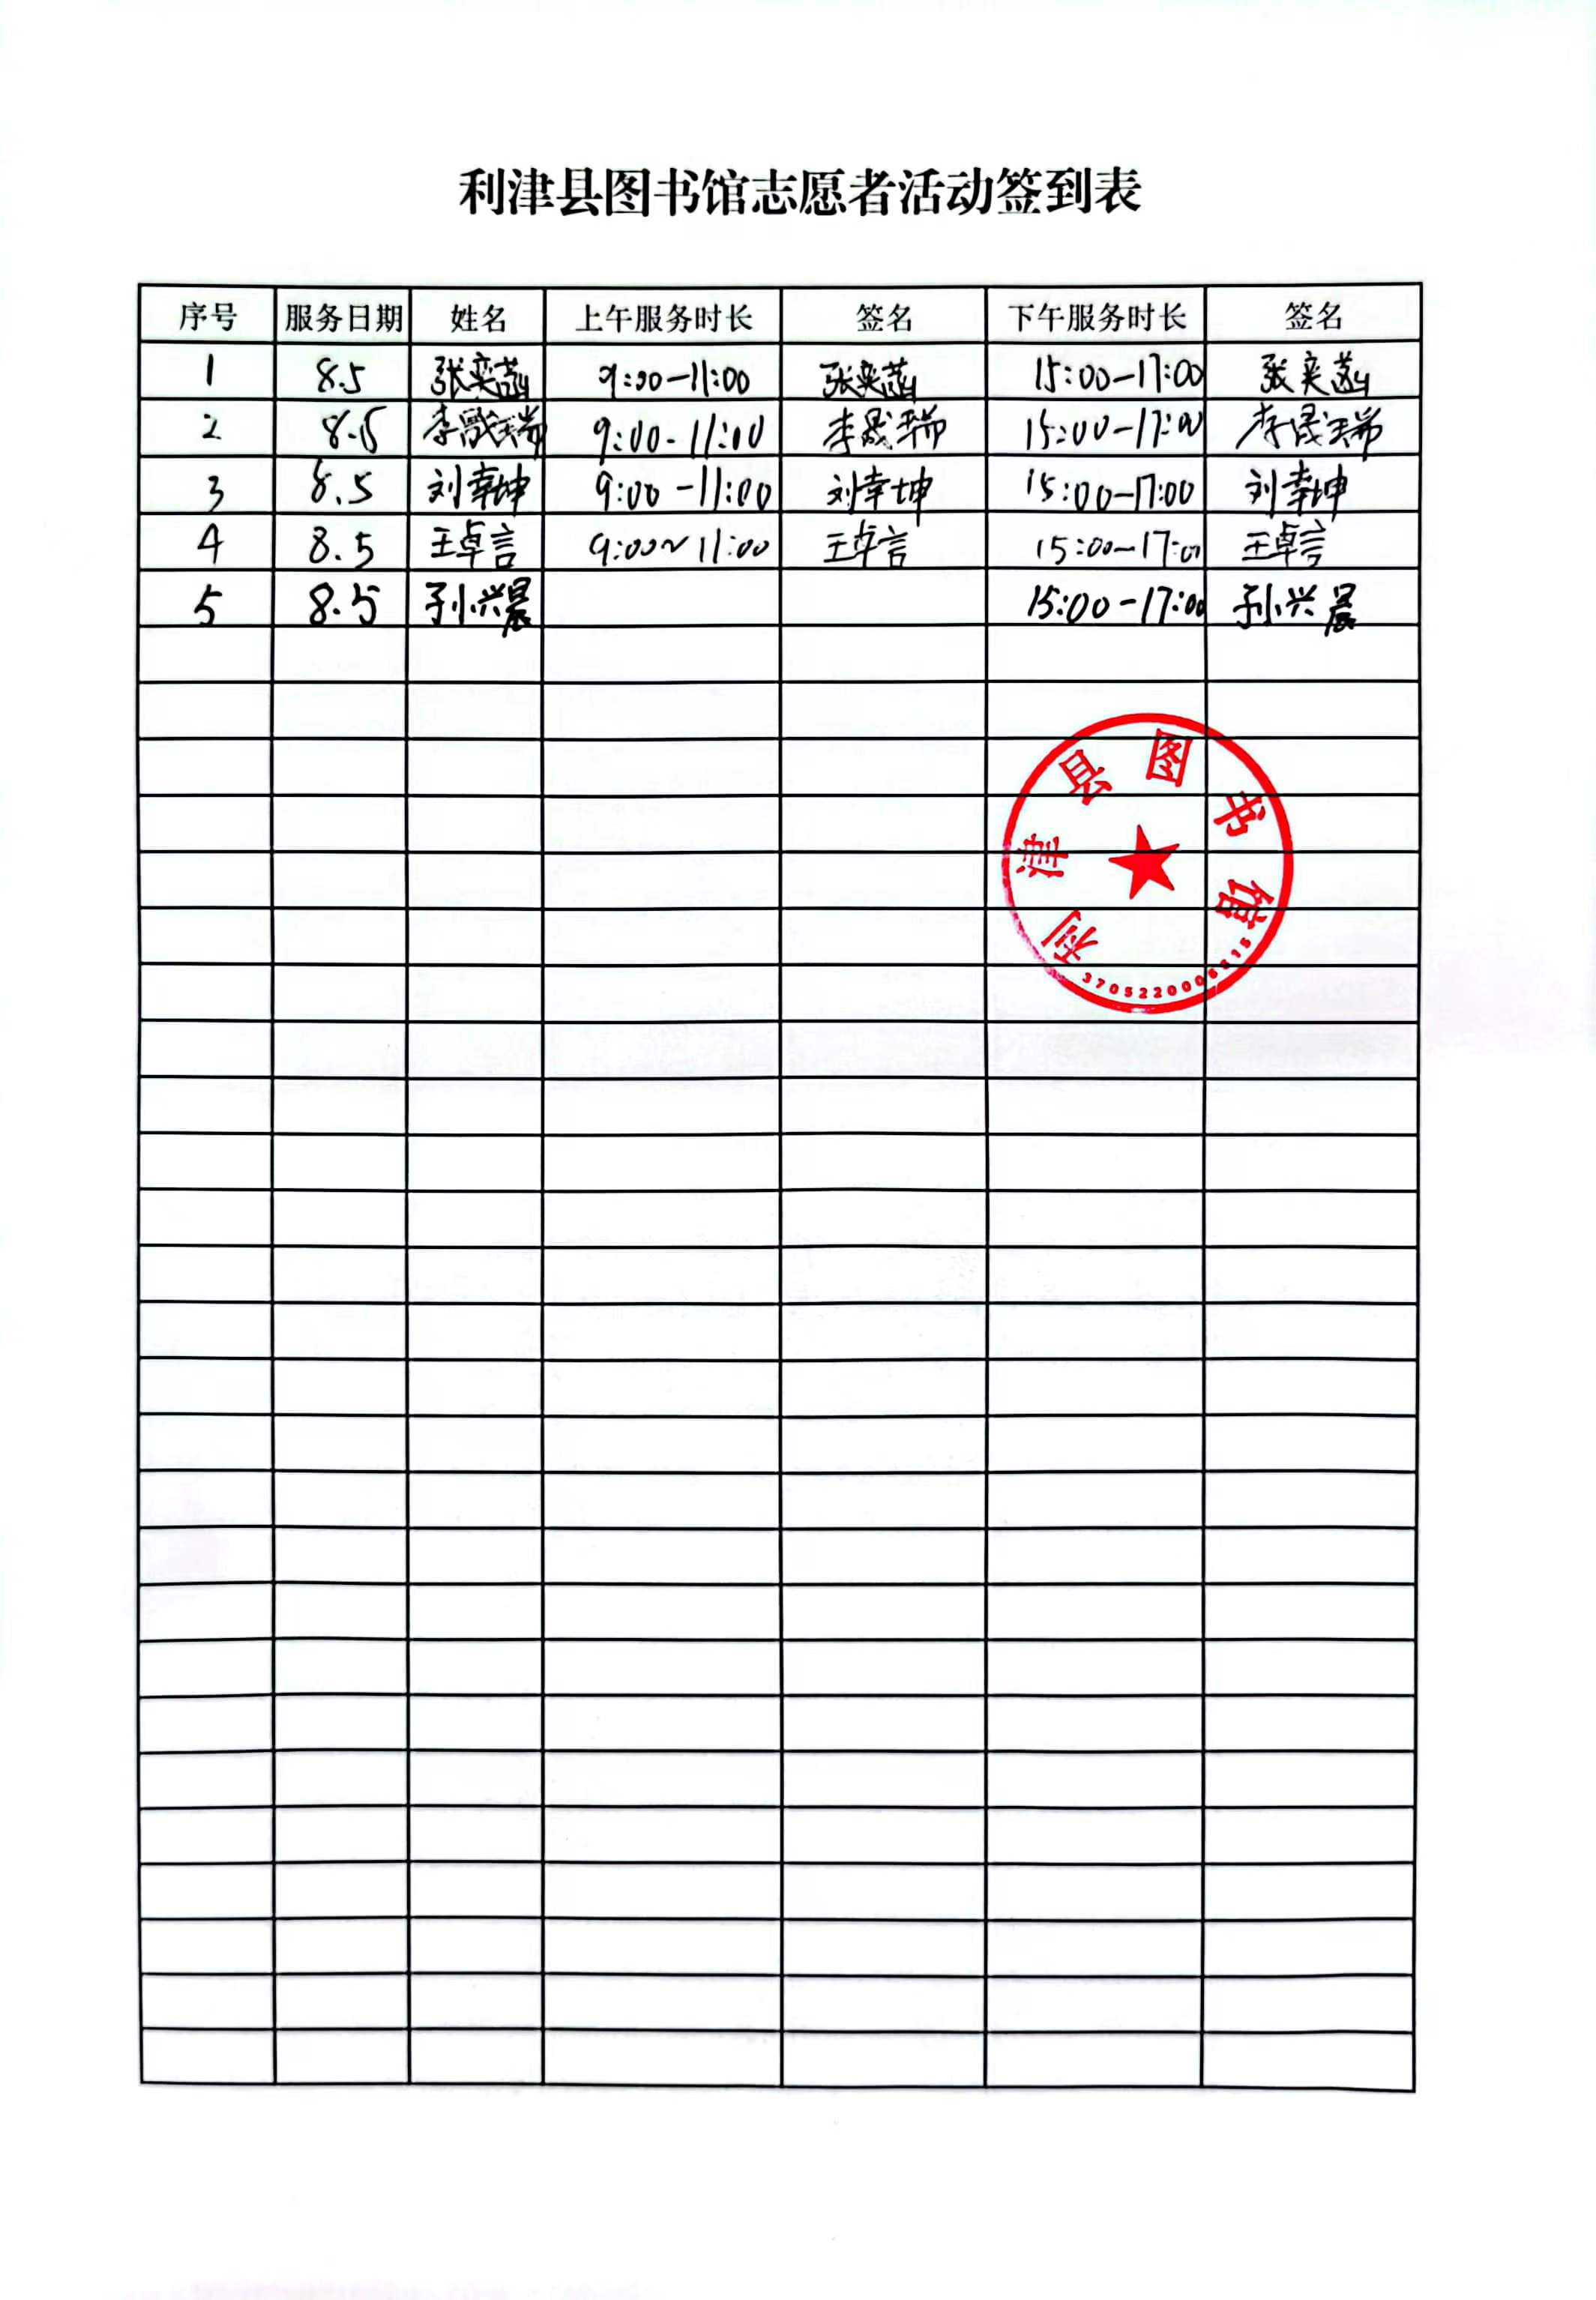 利津县图书馆志愿者活动签到表
序号 服务日期 姓名 上午服务时长 签名 下午服务时长 签名
1 8.5 张奕菡 9:00-11:00 张奕菡 15:00-17:00 张奕菡
2 8.5 李晟瑞 9:00-11:00 李晟瑞 15:00-17:00 李晟瑞
3 8.5 刘幸坤 9:00-11:00 刘幸坤 15:00-17:00 刘幸坤
4 8.5 王卓言 9:00~11:00 王卓言 15:00-17:00 王卓言
5 8.5 孙兴晨 15:00-17:00 孙兴晨
利津县图书馆